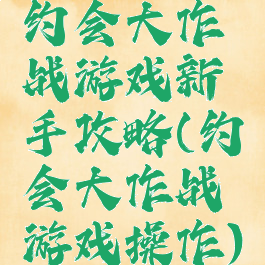 约会大作
战游戏新
手攻略(约
会大作战
游戏操作)